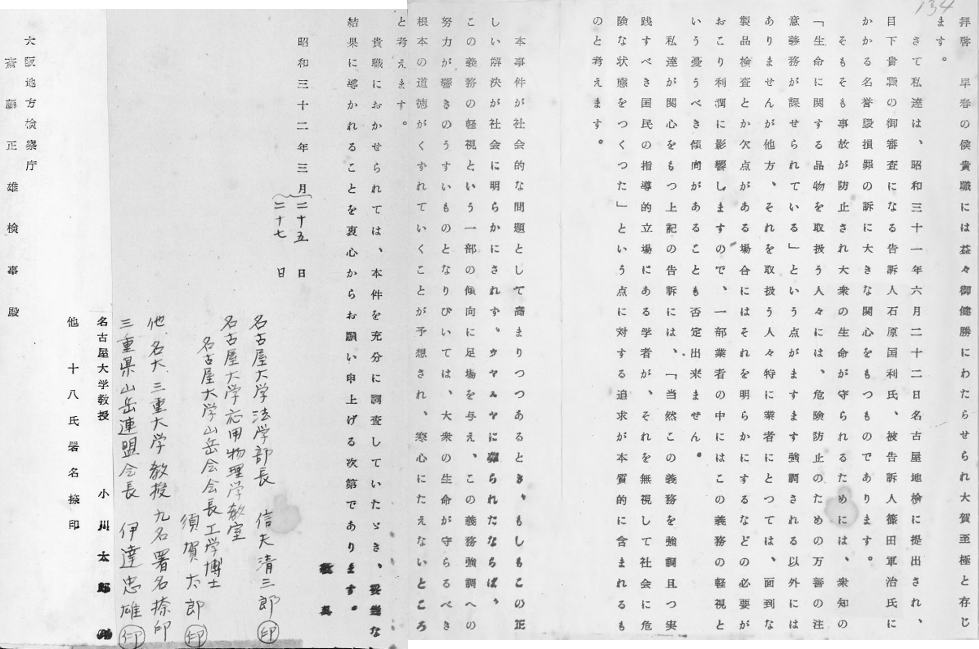 134
拝啓　早春の候貴職には益々御健勝にわたらせられ大賀至極と存じ
ます。
さて私達は、昭和三十一年六月二十二日名古屋地検に提出され、
目下貴職の御審査になる告訴人石原国利氏、被告訴人篠田軍治氏に
かかる名誉毀損罪の訴に大きな関心をもつものであります。
そもそも事故が防止され大衆の生命が守られるためには、衆知の
「生命に関する品物を取扱う人々には、危険防止のための万善の注
意義務が課せられている」という点がますます強調される以外には
ありませんが他方、それを取扱う人々特に業者にとつては、面到な
製品検査とか欠点がある場合にはそれを明らかにするなどの必要が
おこり利潤に影響しますので、一部業者の中にはこの義務の軽視と
いう憂うべき傾向があることも否定出来ません。
私達が関心をもつ上記の告訴には、「当然この義務を強調且つ実
践すべき国民の指導的立場にある学者が、それを無視して社会に危
険な状態をつくつた」という点に対する追求が本質的に含まれるも
のと考えます。
本事件が社会的な問題として高まりつつあるとき、もしもこの正
しい解決が社会に明らかにされず、ウヤムヤに葬られたならば、
この義務の軽視という一部の傾向に足場を与え、この義務強調への
努力が響きのうすいものとなりひいては、大衆の生命が守らるべき
根本の道徳がくずれていくことが予想され、寒心にたえないところ
と考えます。
貴職におかせられては、本件を充分に調査していただき、妥当な
結果に導かれることを衷心からお願い申上げる次第であります。
敬具
昭和三十二年三月二十五日
二十七日
名古屋大学法学部長　信夫清三郎 印
名古屋大学応用物理学教室
名古屋大学山岳会会長工学博士
須賀太郎 印
他 名大、三重大学教授 九名署名捺印
三重県山岳連盟会長　伊達忠雄 印
名古屋大学教授　小川太郎
他　十八氏署名捺印
大阪地方検察庁
斎藤正雄検事殿